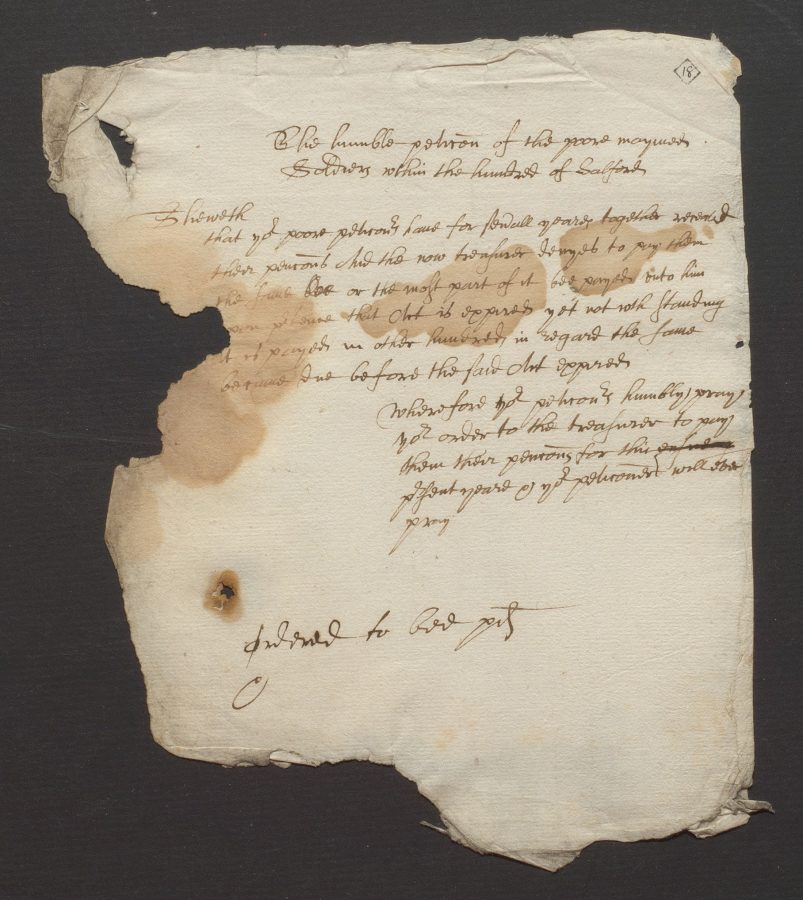 18
The humble peticon of the poore maymed
Soldiers within the hundred of Salford
Sheweth
that yor poore peticonrs have for severall yeares together received
their pencons And the now treasurer denyes to pay them
the same or the most part of it bee payed unto him
upon p'tence that Act is expired yet not with standing
it is payed in other hundreds in regard the same
became due before the said Act expired
Wherefore yor peticonrs humbly pray
yor order to the treasurer to pay
them their pencons for this
p'sent yeare & yor peticoners will ever
pray
Ordered to bee pd